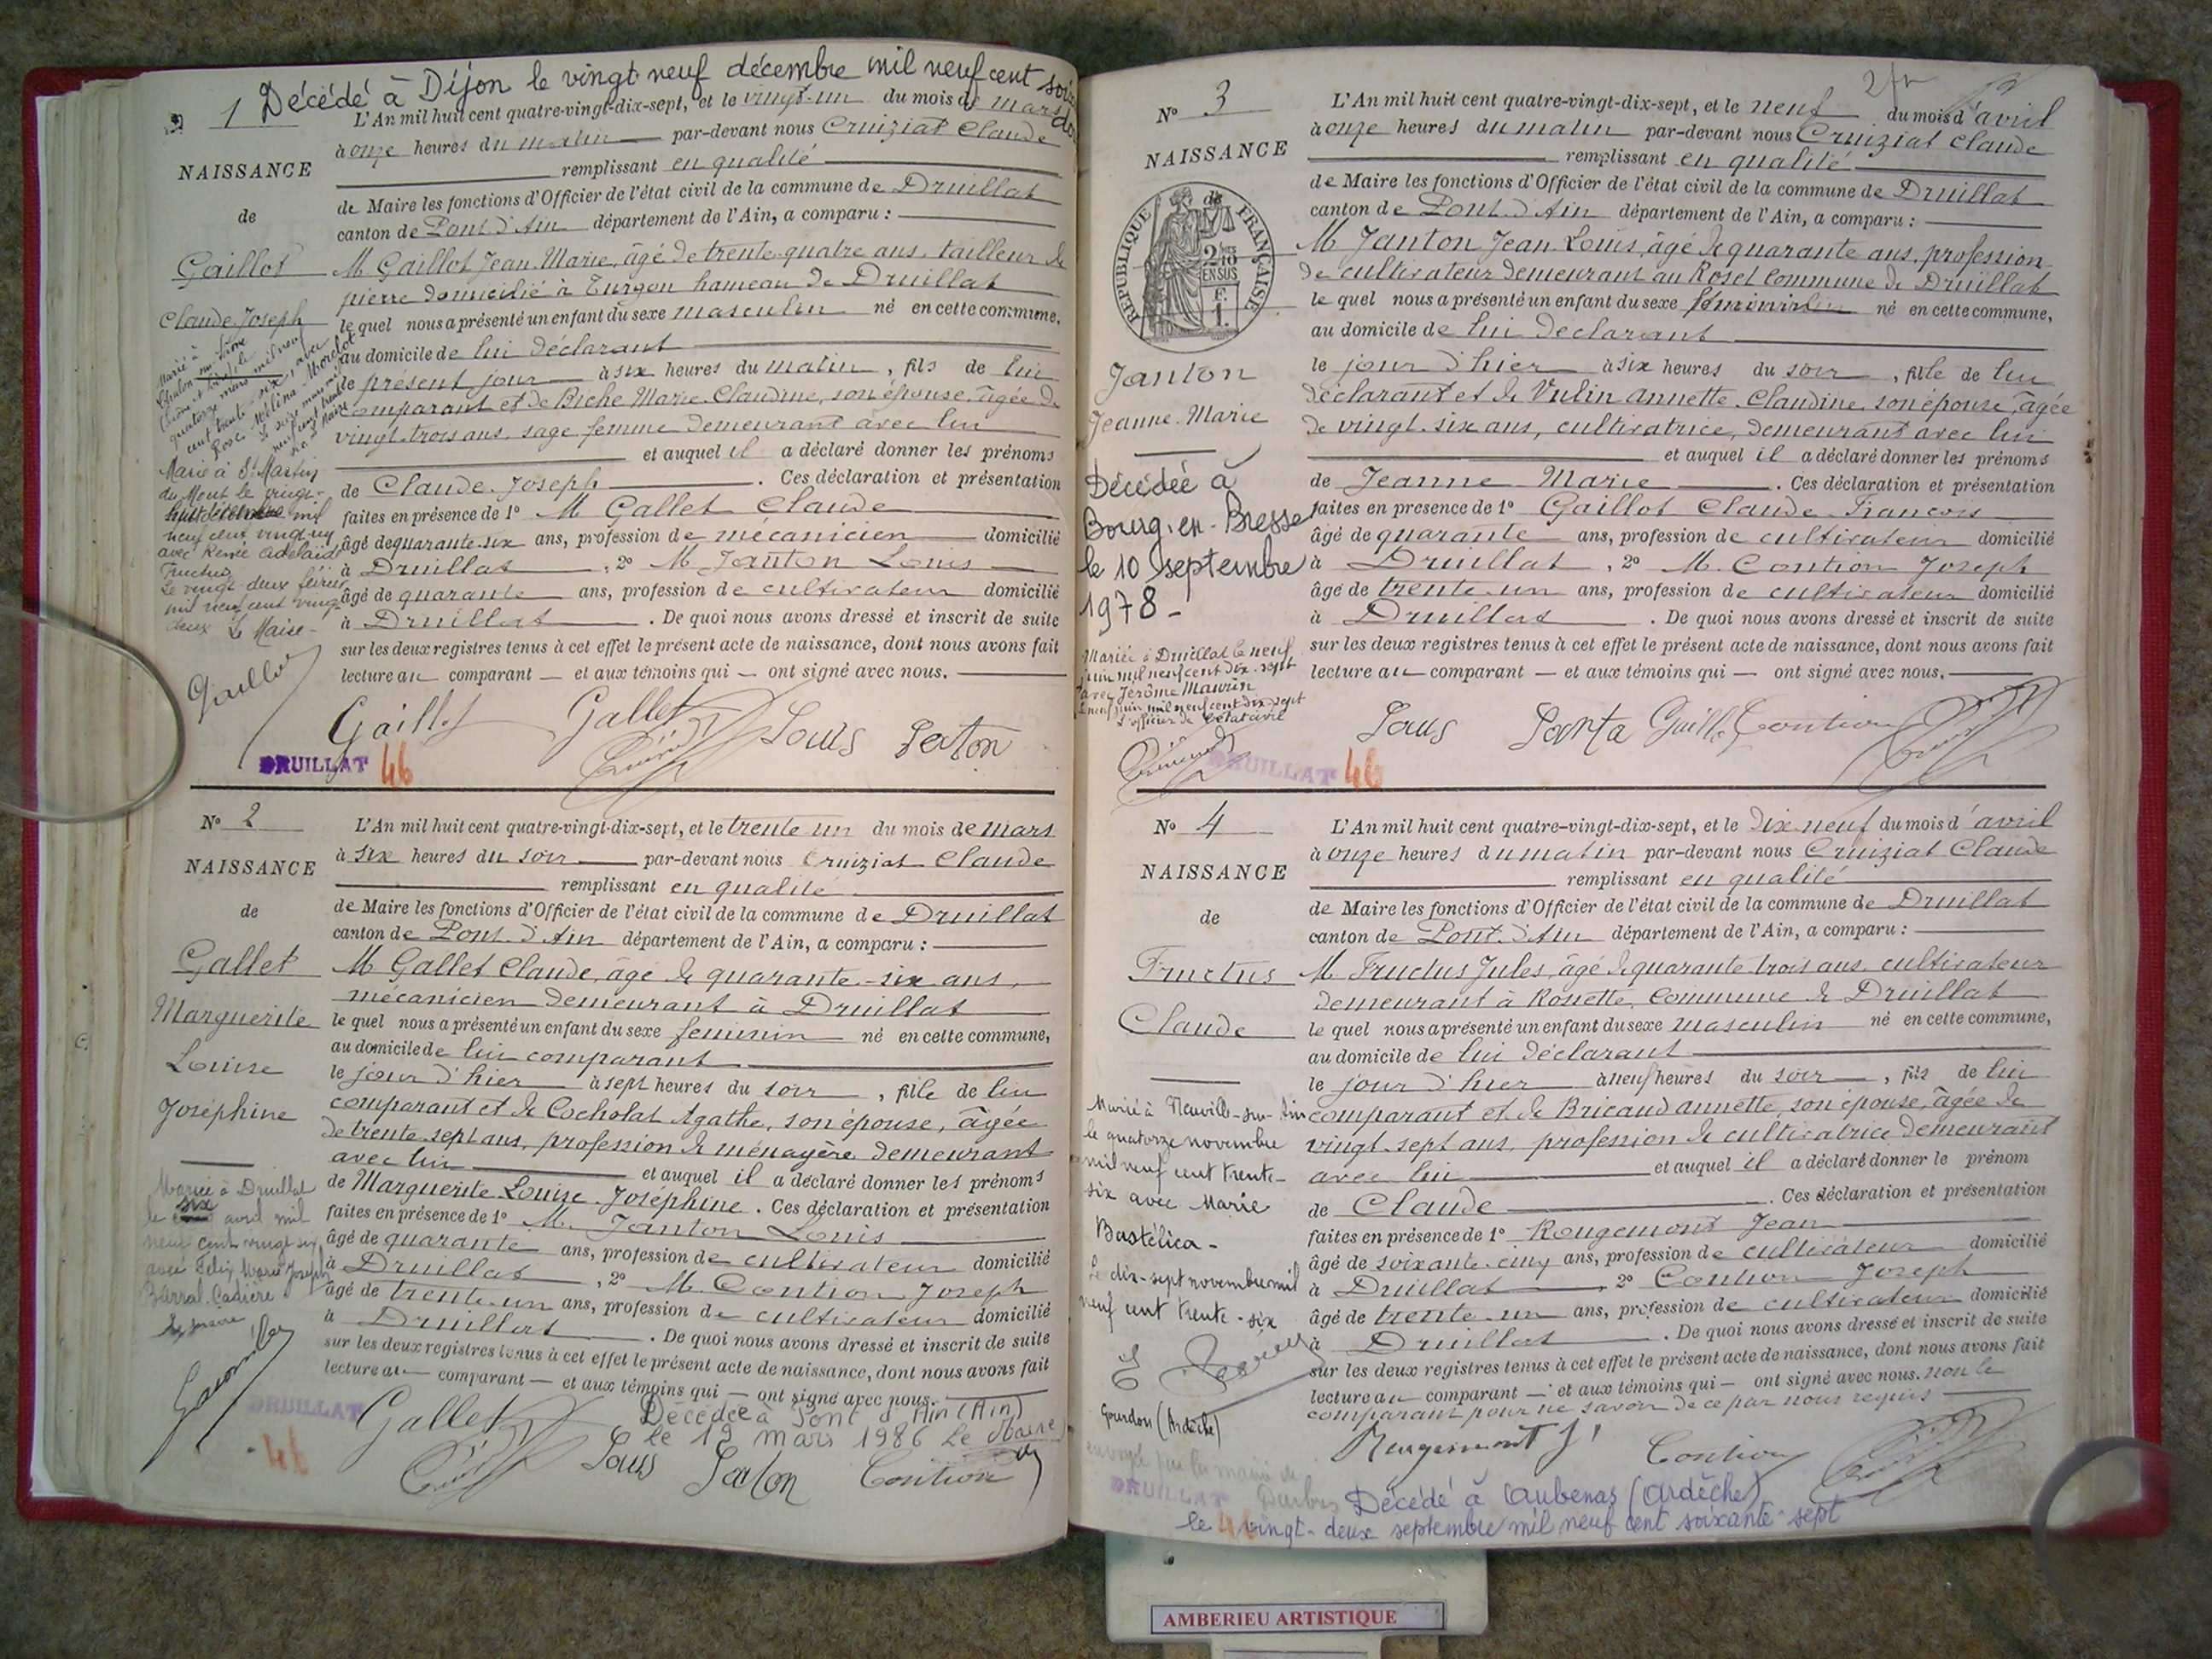 1 Décédé à Dijon le vingt-neuf décembre mil neuf cent
L'An mil huit cent quatre-vingt-dix-sept, et le vingt-un du mois de mars
à onze heures du matin par-devant nous Cruiziat Claude
remplissant en qualité
NAISSANCE
de Maire les fonctions d'Officier de l'état civil de la commune de Druillat
de
canton de Pont-d'Ain département de l'Ain, a comparu :
Gaillot
M Gaillot Jean Marie, âgé de trente-quatre ans, tailleur de
pierre domicilié à Turgon hameau de Druillat
Claude Joseph
le quel nous a présenté un enfant du sexe masculin né en cette commune,
au domicile de lui déclarant
le présent jour à six heures du matin, fils de lui
comparant et de Biche Marie Claudine, son épouse, âgée de
vingt-trois ans, sage femme demeurant avec lui
et auquel il a déclaré donner les prénoms
de Claude Joseph. Ces déclaration et présentation
faites en présence de 1° M Gallet Claude
âgé de quarante-six ans, profession de mécanicien domicilié
à Druillat, 2° M Janton Louis
âgé de quarante ans, profession de cultivateur domicilié
à Druillat. De quoi nous avons dressé et inscrit de suite
sur les deux registres tenus à cet effet le présent acte de naissance, dont nous avons fait
lecture au comparant et aux témoins qui ont signé avec nous.
Marié à
Chalon-sur-Saône
quatorze mars mil neuf
cent trente-six, avec
Rose Mélina Morelot
Marié à St Martin
du Mont le vingt-
huit décembre mil
neuf cent vingt-un
avec Renée Adélaïde
Fructus
Le vingt-deux février
mil neuf cent vingt
deux Le Maire
Gaillot
Gaillot Gallet Louis Jaton
DRUILLAT 46
N° 2
L'An mil huit cent quatre-vingt-dix-sept, et le trente un du mois de mars
à six heures du soir par-devant nous Cruiziat Claude
NAISSANCE
remplissant en qualité
de
de Maire les fonctions d'Officier de l'état civil de la commune de Druillat
canton de Pont-d'Ain département de l'Ain, a comparu :
Gallet
M Gallet Claude, âgé de quarante-six ans,
mécanicien demeurant à Druillat
Marguerite
le quel nous a présenté un enfant du sexe féminin né en cette commune,
au domicile de lui comparant
Louise
le jour d'hier à sept heures du soir, fille de lui
Joséphine
comparant et de Cocholat Agathe, son épouse, âgée
de trente-sept ans, profession de ménagère demeurant
avec lui et auquel il a déclaré donner les prénoms
de Marguerite Louise Joséphine. Ces déclaration et présentation
faites en présence de 1° M. Janton Louis
âgé de quarante ans, profession de cultivateur domicilié
à Druillat, 2° M. Contion Joseph
âgé de trente-un ans, profession de cultivateur domicilié
à Druillat. De quoi nous avons dressé et inscrit de suite
sur les deux registres tenus à cet effet le présent acte de naissance, dont nous avons fait
lecture au comparant et aux témoins qui ont signé avec nous.
Mariée à Druillat
le six avril mil
neuf cent vingt six
avec Félix Marie Joseph
Barral-Cadière
Décédée à Pont d'Ain (Ain)
le 19 mars 1986 Le Maire
DRUILLAT
46
Gallet Louis Jaton Contion
N° 3
L'An mil huit cent quatre-vingt-dix-sept, et le neuf du mois d'avril
à onze heures du matin par-devant nous Cruiziat Claude
NAISSANCE
remplissant en qualité
de
de Maire les fonctions d'Officier de l'état civil de la commune de Druillat
canton de Pont-d'Ain département de l'Ain, a comparu :
RÉPUBLIQUE FRANÇAISE
2/10 EN SUS
F. 1.
M Janton Jean Louis, âgé de quarante ans, profession
de cultivateur demeurant au Roset commune de Druillat
le quel nous a présenté un enfant du sexe féminin né en cette commune,
au domicile de lui déclarant
Janton
Jeanne Marie
le jour d'hier à six heures du soir, fille de lui
déclarant et de Vulin Annette Claudine, son épouse, âgée
de vingt-six ans, cultivatrice, demeurant avec lui
et auquel il a déclaré donner les prénoms
de Jeanne Marie. Ces déclaration et présentation
faites en présence de 1° Gaillot Claude François
âgé de quarante ans, profession de cultivateur domicilié
à Druillat, 2° M. Contion Joseph
âgé de trente-un ans, profession de cultivateur domicilié
à Druillat. De quoi nous avons dressé et inscrit de suite
sur les deux registres tenus à cet effet le présent acte de naissance, dont nous avons fait
lecture au comparant et aux témoins qui ont signé avec nous.
Décédée à
Bourg-en-Bresse
le 10 septembre
1978-
Mariée à Druillat le neuf
juin mil neuf cent dix-sept
avec Jérôme Maurin
Le neuf juin mil neuf cent dix-sept
L'officier de l'état civil
Louis Janto Gaillot Contion
DRUILLAT 46
N° 4
L'An mil huit cent quatre-vingt-dix-sept, et le dix-neuf du mois d'avril
à onze heures du matin par-devant nous Cruiziat Claude
NAISSANCE
remplissant en qualité
de
de Maire les fonctions d'Officier de l'état civil de la commune de Druillat
canton de Pont-d'Ain département de l'Ain, a comparu :
Fructus
M Fructus Jules, âgé de quarante trois ans, cultivateur
demeurant à Rossette, commune de Druillat
Claude
le quel nous a présenté un enfant du sexe masculin né en cette commune,
au domicile de lui déclarant
le jour d'hier à neuf heures du soir, fils de lui
comparant et de Bricaud Annette, son épouse, âgée de
vingt-sept ans, profession de cultivatrice demeurant
avec lui et auquel il a déclaré donner le prénom
de Claude. Ces déclaration et présentation
faites en présence de 1° Rougemont Jean
âgé de soixante-cinq ans, profession de cultivateur domicilié
à Druillat 2° Contion Joseph
âgé de trente-un ans, profession de cultivateur domicilié
à Druillat. De quoi nous avons dressé et inscrit de suite
sur les deux registres tenus à cet effet le présent acte de naissance, dont nous avons fait
lecture au comparant et aux témoins qui ont signé avec nous. non le
comparant pour ne savoir de ce par nous requis
Marié à Neuville-sur-Ain
le quatorze novembre
mil neuf cent trente-
six avec Marie
Bastélica-
Le dix-sept novembre mil
neuf cent trente-six
Gourdon (Ardèche)
Rougemont J Contion
DRUILLAT
46
Décédé à Aubenas (Ardèche)
le vingt-deux septembre mil neuf cent soixante-sept
AMBERIEU ARTISTIQUE